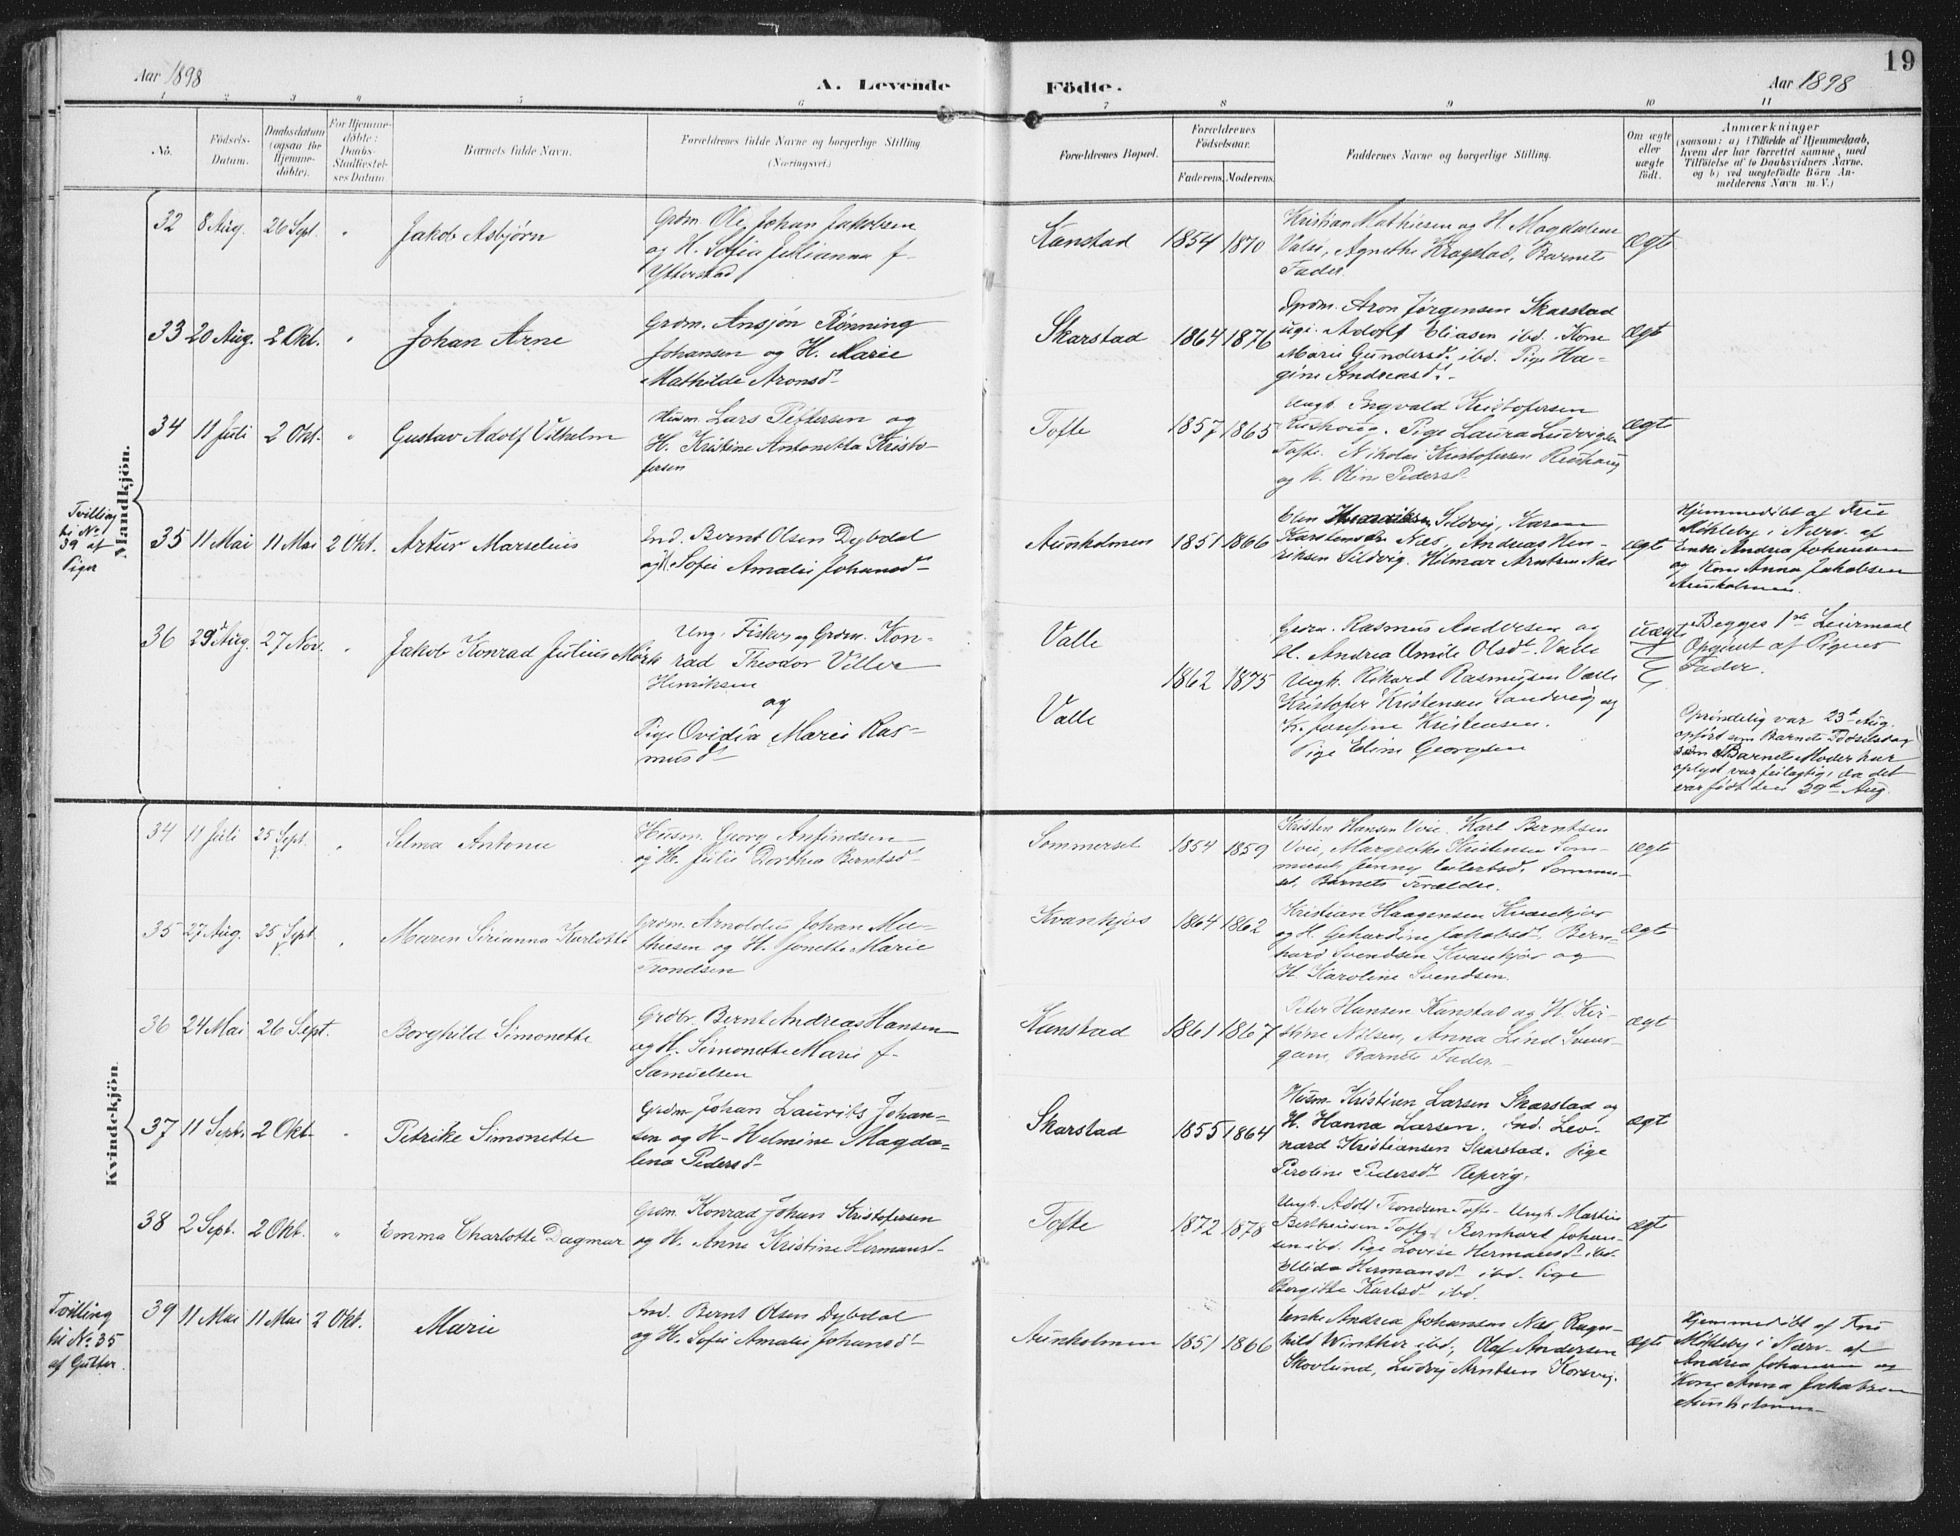 Aar 1898
A. Levende
Födte.
Aar 1898
19
1 2 3 4 5 6 7 8 9 10 11
No.
Födsels-
Datum.
Daabsdatum
(ogsaa for
Hjemme-
döbte).
For Hjemme-
döbte:
Daabs-
Stadfæstel-
ses Datum.
Barnets fulde Navn.
Forældrenes fulde Navne og borgerlige Stilling
(Næringsvei.)
Forældrenes Bopæl.
Forældrenes
Födselsaar.
Faderens. Moderens.
Faddernes Navne og borgerlige Stilling.
Om ægte
eller
uægte
födt.
Anmærkninger
(saasom: a) i Tilfælde af Hjemmedaab,
hvem der har forrettet samme, med
Tilföielse af to Daabsvidners Navne.
og b) ved uægtefödte Börn An-
melderens Navn m. V.)
Mandkjön.
32 8 Aug. 26 Sept. " Jakob Asbjørn
Grdm. Ole Johan Jakobsen
og H. Sofia Julianna f.
Ytterstad
Kanstad 1854 1870
Kristian Mathiesen og H. Magdalena
Valsø, Agnethe Kragstad, Barnets
Fader.
Ægte
33 20 Aug. 2 Okt. " Johan Arne
Grdm. Ansjön Rönning
Johansen og H. Marie
Mathilde Aronsd.
Skarstad 1864 1876
Grdm. Aron Jørgensen Skarstad
ugi. Adolf Eliasen ibd. Kone
Marie Gundersd. ibd. Pige Ha-
gine Andreasd.
Ægte
34 11 Juli 2 Okt. " Gustav Adolf Vilhelm
Husm. Lars Pettersen og
H. Kristine Antonetta Kristo-
fersen
Tofte 1857 1865
Ungk. Ingvald Kristofersen
Pige Laura Ludvigsen
Tofte. Nikolai Kristofersen
og H. Oline Pedersd.
Ægte
Tvilling
til No
39 af
Piger
35 11 Mai 11 Mai 2 Okt. Artur Marselius
Ind. Bernt Olsen Dybdal
og H. Sofie Amalie Johansd.
Aunholmen 1851 1866
Elen Sildvig, Karen
Karstensen Næs, Andreas Hen-
riksen Sildvig. Hilmar Arntsen Næs
ægte
Hjemmedöbt af Frue
Mökleby i Nærv. af
Enke Andrea Johansen
og Kone Anna Jakobsen
Aunholmen.
36 29 Aug. 27 Nov. " Jakob Konrad Julius Mörk
Ung. Fisker og Grdm. Kon-
rad Theodor Villor
Henriksen
og
Pige Ovidia Marie Ras-
musd.
Valle
Valle
1862 1875
Grdm. Rasmus Andersen og
H. Andrea Emilie Olsd. Valle
Ungk. Rikard Rasmussen Valle
Kristofer Kristensen Sandvig og
H. Josefine Kristensen.
Pige Eline Georgsen
uægte
Begges 1ste Leiermaal
Opgivet af Pigens
Fader.
Oprindelig var 23de Aug.
opført som Barnets Födselsdag
som Barnets Moder har
oplyst var feilagtig, da det
var født den 29de Aug.
Kvindekjön.
34 11 Juli 25 Sept. " Selma Antonie
Husm. Georg Anfindsen
og H. Julie Dorthea Berntsd.
Sommerset 1854 1859
Kristen Hansen Voie. Karl Berntsen
Voie, Margrethe Kristensen Som-
merset, Jenny Eilertsd. Sommer-
set, Barnets Forældre.
ægte
35 27 Aug. 25 Sept. " Maren Sirianna Karlotte
Grdm. Arnoldus Johan Ma-
thiesen og H. Jonette Marie
Trondsen
Kvankjos 1864 1862
Kristian Haagensen Kvankjos
og H. Gehardine Jakobsd., Bern-
hard Svendsen Kvankjos og
H. Karoline Svendsen.
ægte
36 24 Mai 26 Sept. Borghild Simonette
Grdbr. Bernt Andreas Hansen
og H. Simonette Marie f.
Samuelsen
Kanstad 1861 1867
Peter Hansen Kanstad og H. Kir-
stine Nilsen, Anna Lind Svens-
gam, Barnets Fader.
Ægte
37 11 Sept. 2 Okt. " Petrike Simonette
Grdm. Johan Laurits Johan-
sen og H. Helmine Magda-
lena Pedersd.
Skarstad 1855 1864
Husm. Kristian Larsen Skarstad og
H. Hanna Larsen. Ind. Leo-
nard Kristiansen Skarstad. Pige
Peroline Pedersd. Repvig.
ægte
38 2 Sept. 2 Okt. " Emma Charlotte Dagmar
Grdm. Konrad Johan Kristofersen
og H. Anne Kristine Hermansd.
Tofte 1872 1878
Ungk. Adolf Trondsen Tofte. Ungk. Martin
Bertheussen Tofte. Bernhart Johan-
sen ibd. Pige Lovise Hermansd. ibd.
Ellida Hermansd. ibd. Pige
Bergitte Karlsd. ibd.
ægte
Tvilling
til No 35
af Gutter.
39 11 Mai 11 Mai 2 Okt. Marie
Ind. Bernt Olsen Dybdal
og H. Sofie Amalie Johansd.
Aunholmen 1851 1866
Enke Andrea Johansen Næs. Ragn-
hild Winther ibd., Olaf Andersen
Skovlund, Ludvig Arntsen Korsvig.
ægte
Hjemmedöbt af Fru
Mökleby i Nærv. af
Andrea Johansen og
Kone Anna Jakobsen
Aunholmen